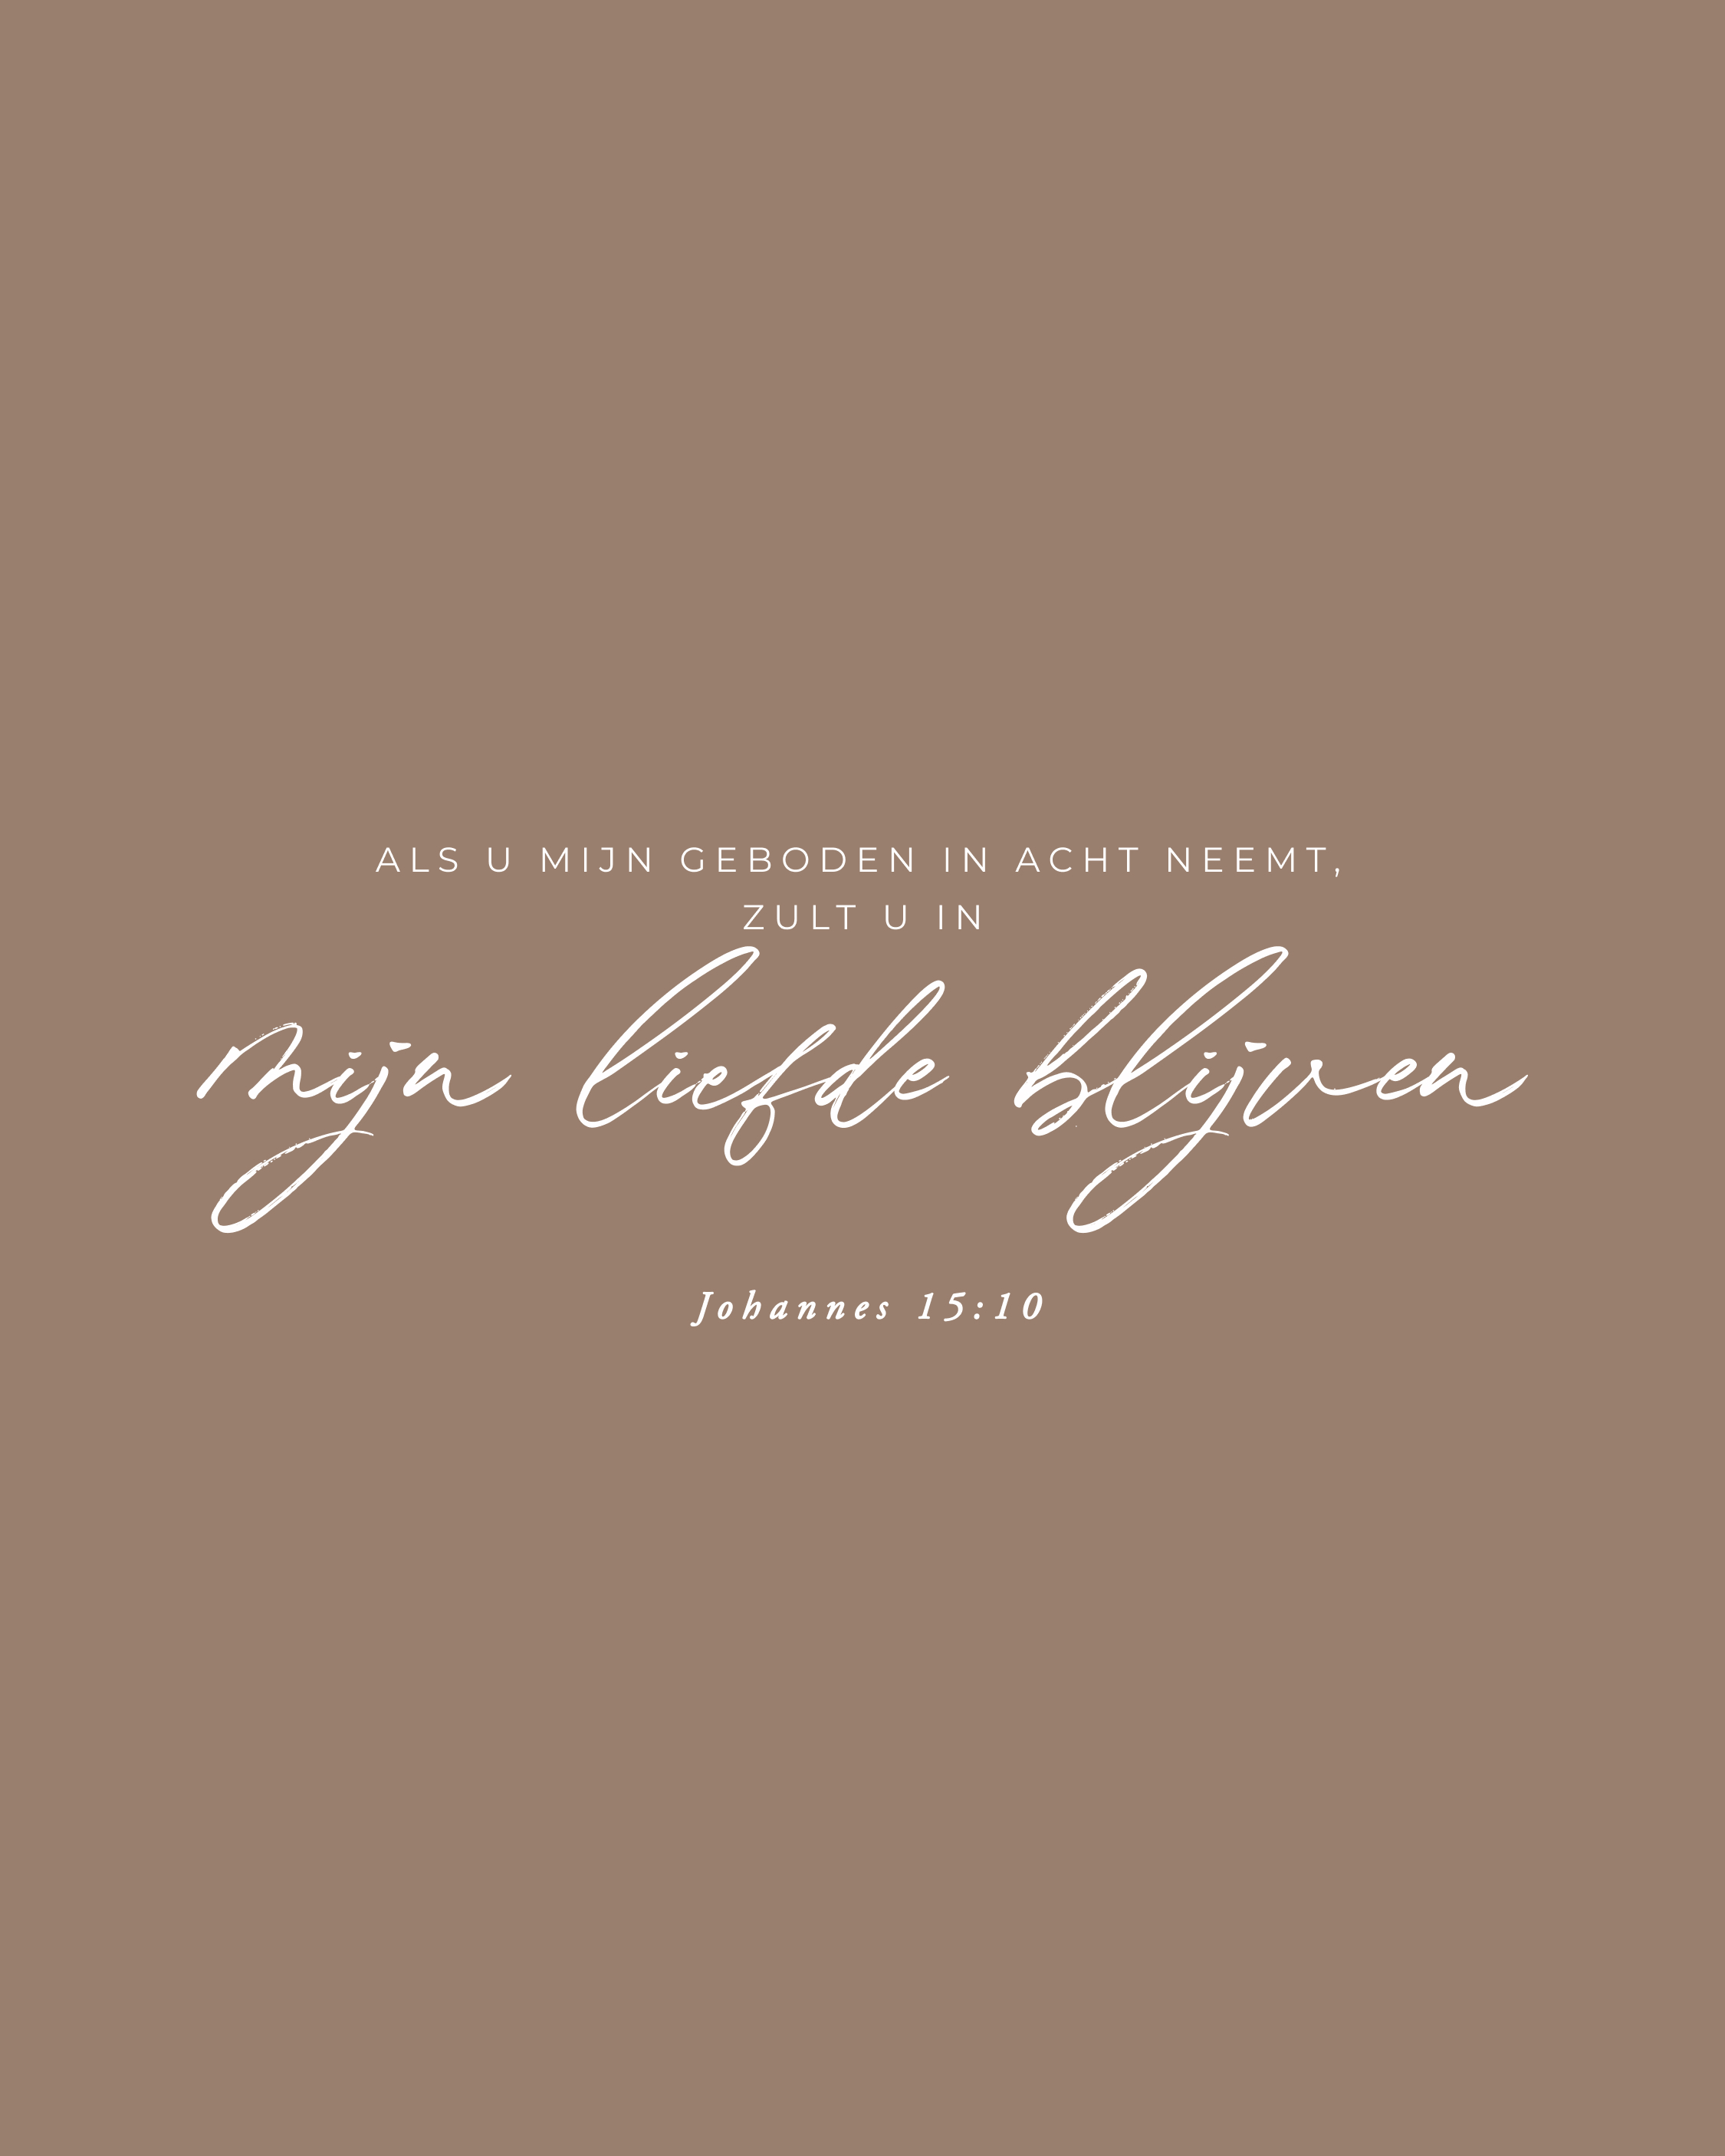 ALS U MIJN GEBODEN IN ACHT NEEMT,
ZULT U IN
mijn liefde blijven
Johannes 15:10